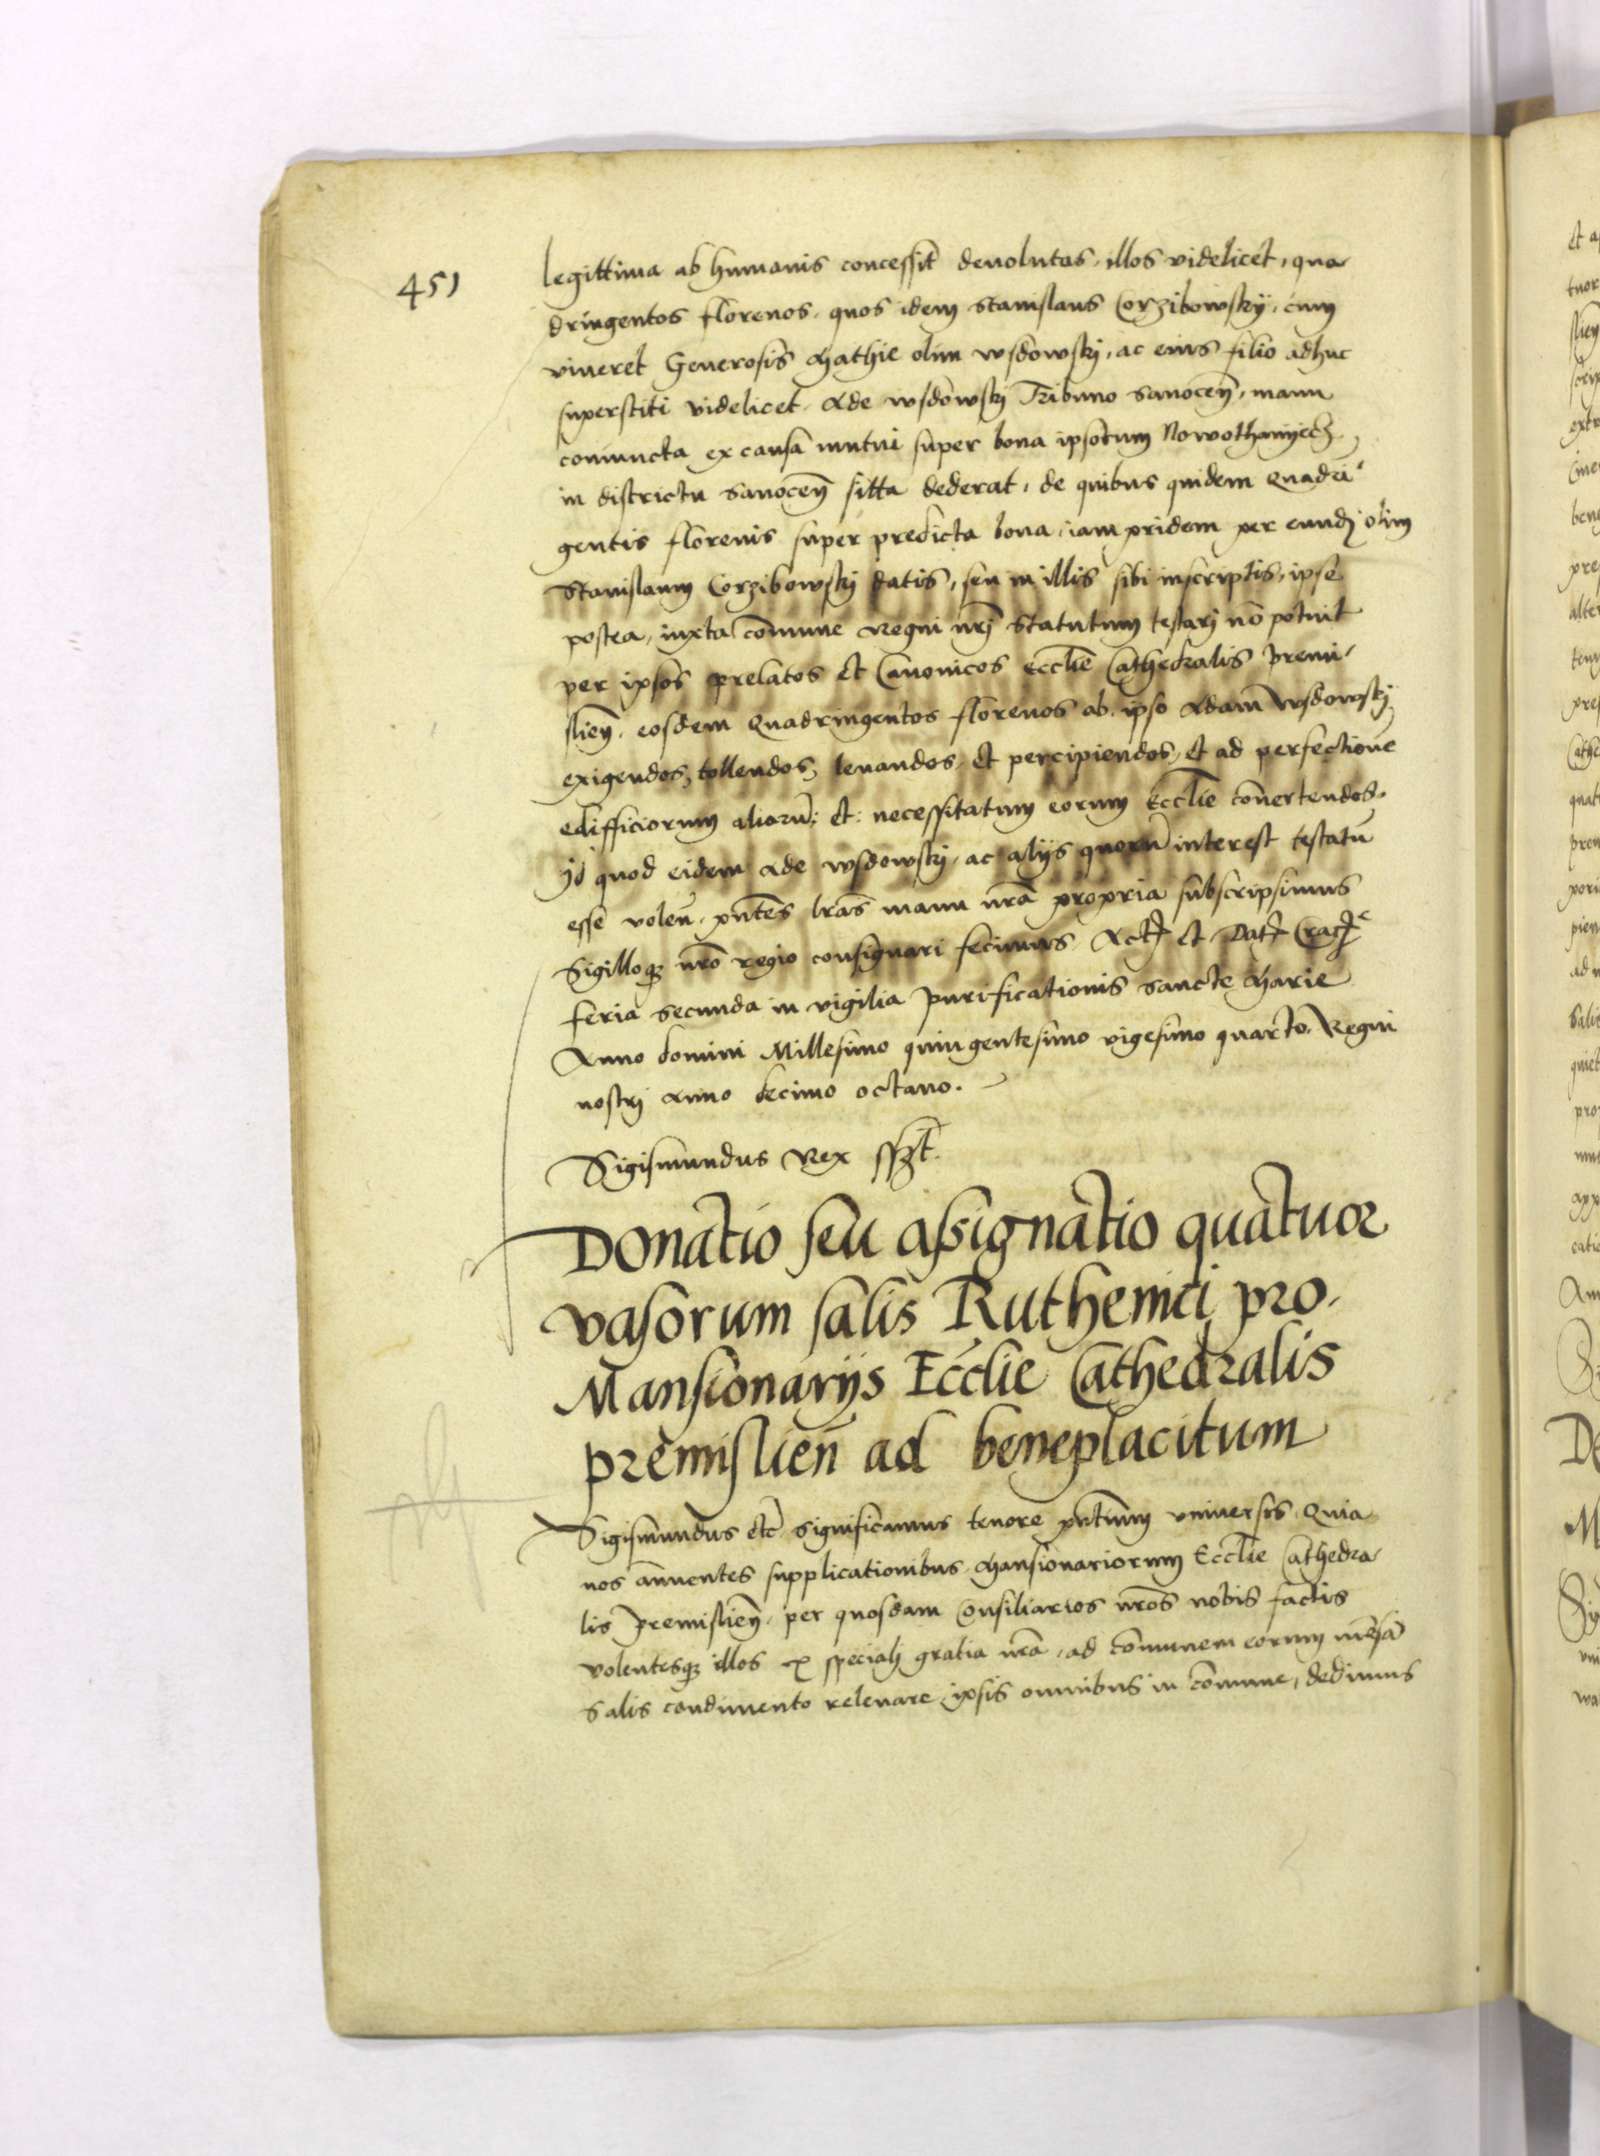 451
legittima ab humanis concessit deuolutas, illos videlicet, qua
dringentos florenos, quos idem Stanislaus Corzibowskij, cum
viueret Generosis Mathie olim wsdowskj, ac eius filio adhuc
superstiti videlicet Ade wsdowskj Tribuno Sanocen̄, manu
coniuncta ex causa mutui super bona ipsorum Nowothanijecz
in districtu Sanocen̄ sitta dederat, de quibus quidem Quadri
gentis florenis super predicta bona, iam pridem per eund̄ olim
Stanislaum Corzibowskj datis, seu in illis sibi inscriptis, ipse
postea, iuxta cōmune Regni nr̄j Statutum testarj nō potuit
per ipsos prelatos et Canonicos Ecclīe Cathedralis Premi-
slien̄, eosdem Quadringentos florenos ab ipso Adam Wsdowskj
exigendos, tollendos, leuandos, et percipiendos, et ad perfectionē
edifficiorum aliorū; et: necessitatum eorum Ecclīe cōuertendos.
jd quod eidem Ade wsdowskj, ac alijs quorū interest testatū
esse volen̄, pn̄tes lrās manu nrā propria subscripsimus
Sigilloqꝫ nrō regio consignari fecimus Act̄ et Dat̄ Crac̄
feria secunda in vigilia Purificationis Sancte Marie
Anno domini Millesimo quingentesimo vigesimo quarto, Regni
nostrj anno decimo octauo.
Sigismundus Rex sszt.
Donatio seu assignatio quatuor
vasorum salis Ruthenici pro
Mansionarijs Ecclie Cathedralis
premislien̄ ad beneplacitum
Sigismundus etc̄ significamus tenore pn̄tium vniuersis Quia
nos ānuentes supplicationibus Mansionariorum Ecclīe Cathedra-
lis Premislien̄, per quosdam Consiliarios nrōs nobis factis
volentesqꝫ illos ex specialj gratia nrā, ad cōmunem eorum mēsā
Salis condimento releuare, ipsis omnibus in cōmune, dedimus